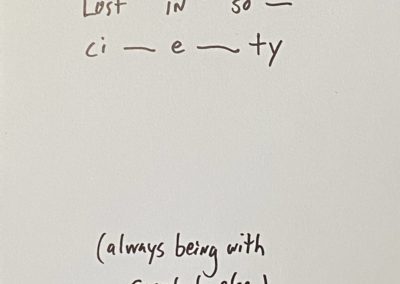 Lost IN so —
ci — e — ty
(always being with